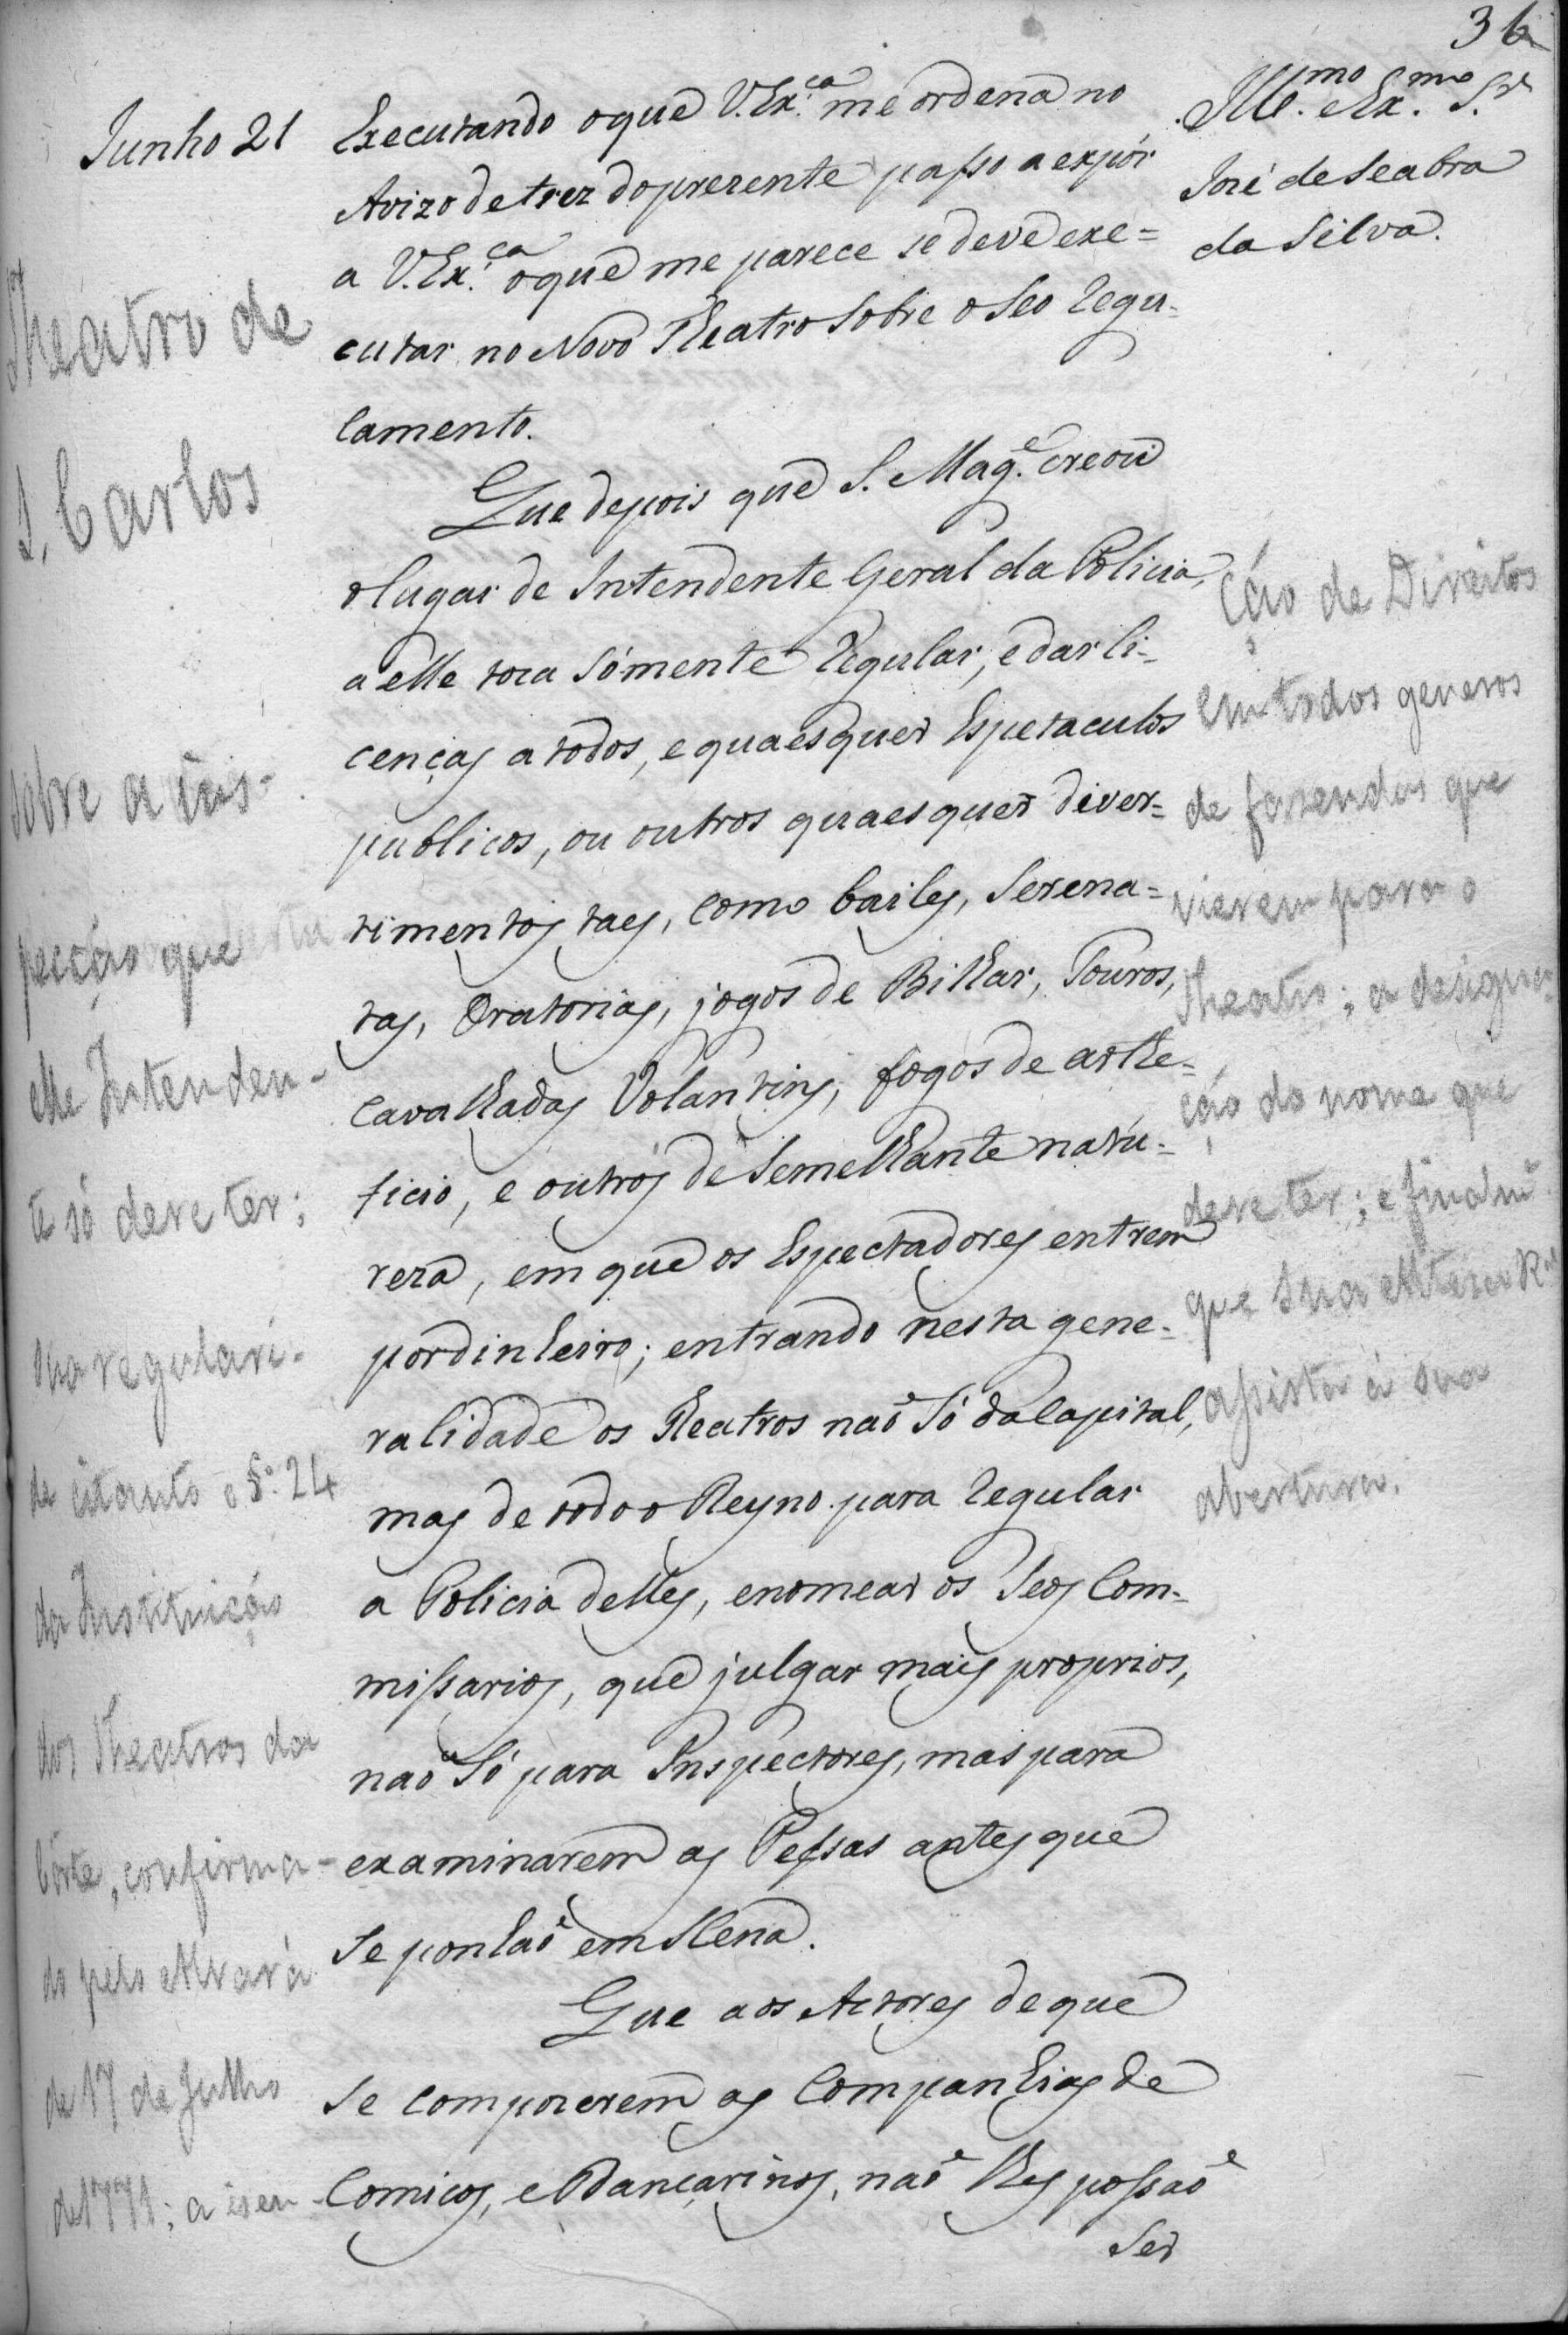 36
Junho 21
Ill.mo e Ex.mo S.r
José de Seabra
da Silva.
Executando o que V. Ex.ca me ordena no
Avizo de trez do prezente passo a expôr
a V. Ex.ca o que me parece se deve exe=
cutar no Novo Theatro sobre o seo regu-
lamento.
Que depois que S. Mag.e creou
o lugar de Intendente Geral da Policia,
a elle toca sómente regular, e dar li-
cenças a todos, e quaesquer Espetaculos
publicos, ou outros quaesquer diver-
timentos taes, como bailes, serena=
tas, Oratorias, jogos de Bilhar, Touros,
cavalhadas Volantins, fogos de arte-
ficio, e outros de semelhante natu-
reza, em que os Espectadores entrem
por dinheiro; entrando nesta gene-
ralidade os Theatros naõ só da Capital,
mas de todo o Reyno para regular
a Policia delles, e nomear os seos Com-
missarios, que julgar mais proprios,
naõ só para Inspectores, mas para
examinarem as Pessas antes que
se ponhaõ em Scena.
Que aos Actores de que
se compozerem as Companhias de
Comicos, e Dançarinos, naõ lhes possaõ
ser
Theatro de
S. Carlos
sobre a ins-
pecção que
elle Intenden-
te só deve ter;
sua regulari-
de citanto o §.º 24
da Instituição
dos Theatros da
Côrte, confirma-
do pelo Alvará
de 17 de Julho
de 1771; a isen-
ção de Direitos
em todos generos
de fazendas que
vierem para o
Theatro; a designa-
ção do nome que
deve ter; e finalm.e
que Sua Alteza R.al
assista á sua
abertura.